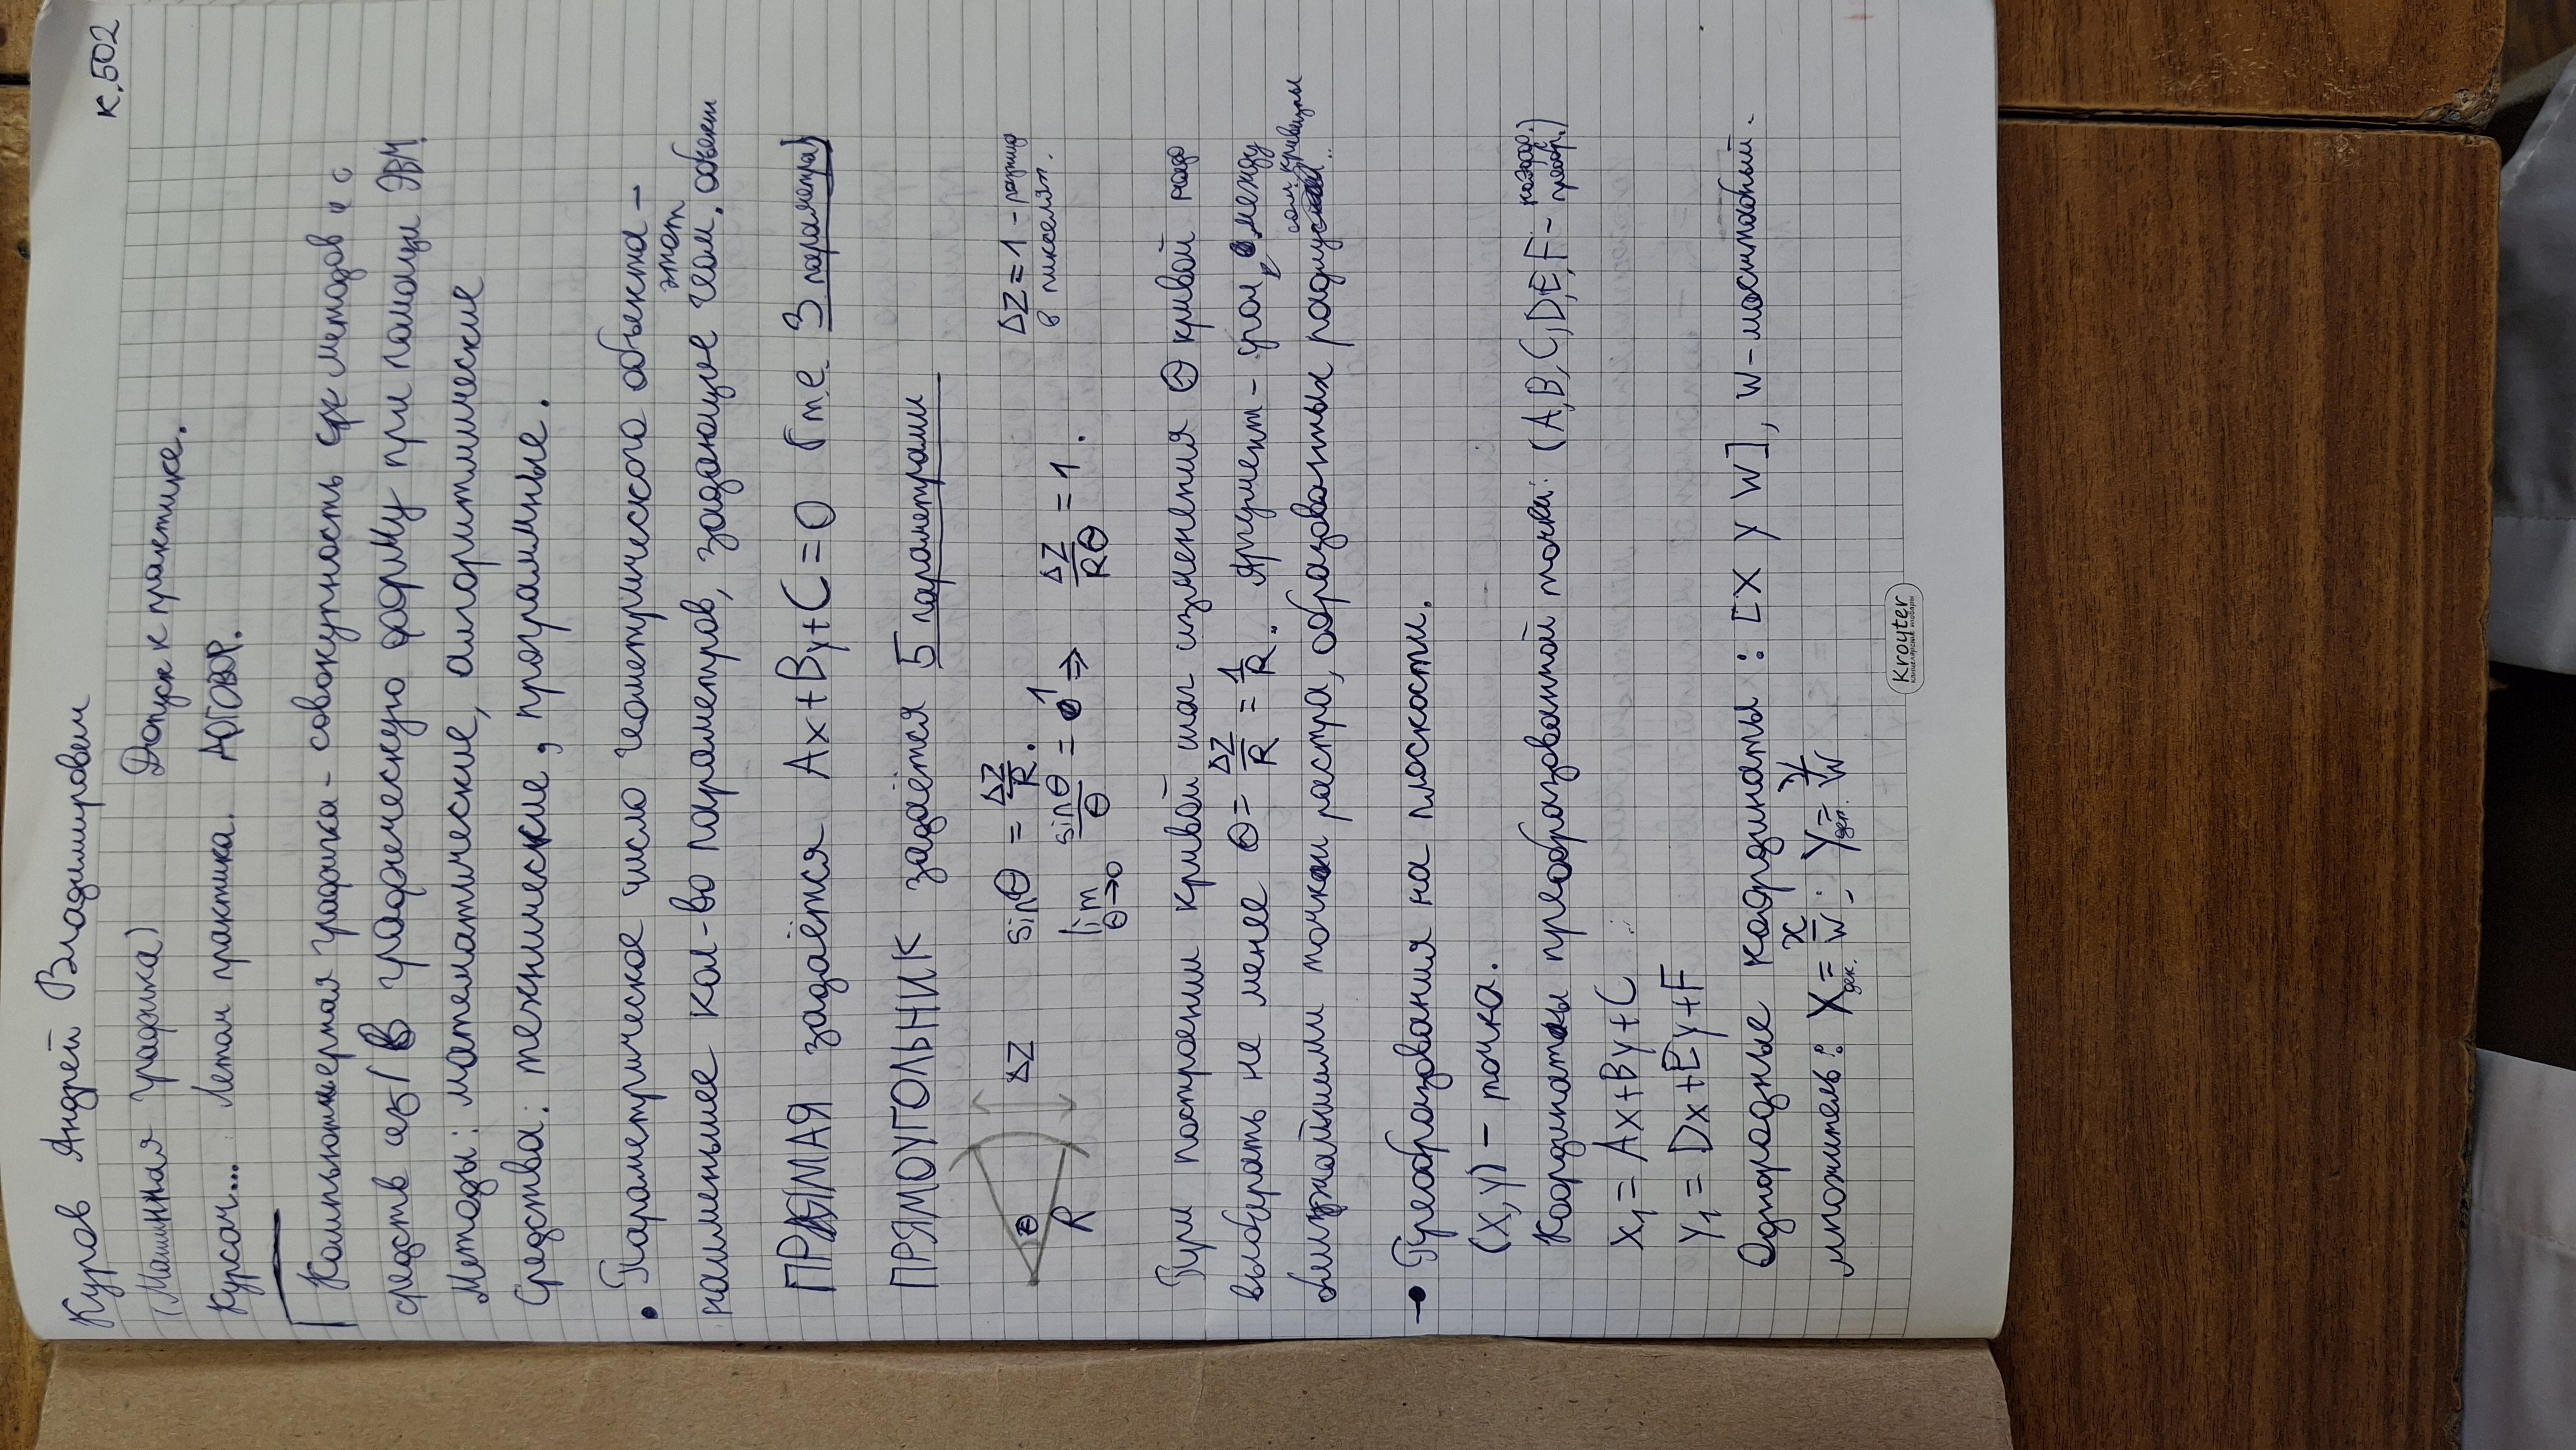 Куров Андрей Владимирович
к.502
(Машинная графика) Допуск к практике.
Курсач... Летом практика. ДОГОВОР.
Компьютерная графика - совокупность методов и
средств в графическую форму при помощи ЭВМ.
Методы: математические, алгоритмические
Средства: технические, программные.
• Параметрическое число геометрического объекта -
этот
наименьшее кол-во параметров, задающие геом. объект
ПРЯМАЯ задаётся Ax+By+C=0 (т.е. 3 параметра)
ПРЯМОУГОЛЬНИК задаётся 5 параметрами
Θ R ΔZ sinΘ = ΔZ/R. ΔZ=1 - разница
в пикселях.
lim Θ→0 sinΘ/Θ = 1 ⇒ ΔZ/RΘ = 1.
При построении кривой шаг изменения Θ кривой надо
выбирать не менее Θ = ΔZ/R = 1/R. Аргумент - угол, между
ближайшими точками растра, образованных радиусом кривизны
→ Преобразования на плоскости.
(x,y) - точка.
Координаты преобразованной точки: (A,B,C,D,E,F - коэфф. преобр.)
x₁ = Ax+By+C
y₁ = Dx+Ey+F
Однородные координаты : [x y W], W-масштабный
множитель: X дек. = x/W ; Y дек. = y/W
Kroyter
канцелярские товары